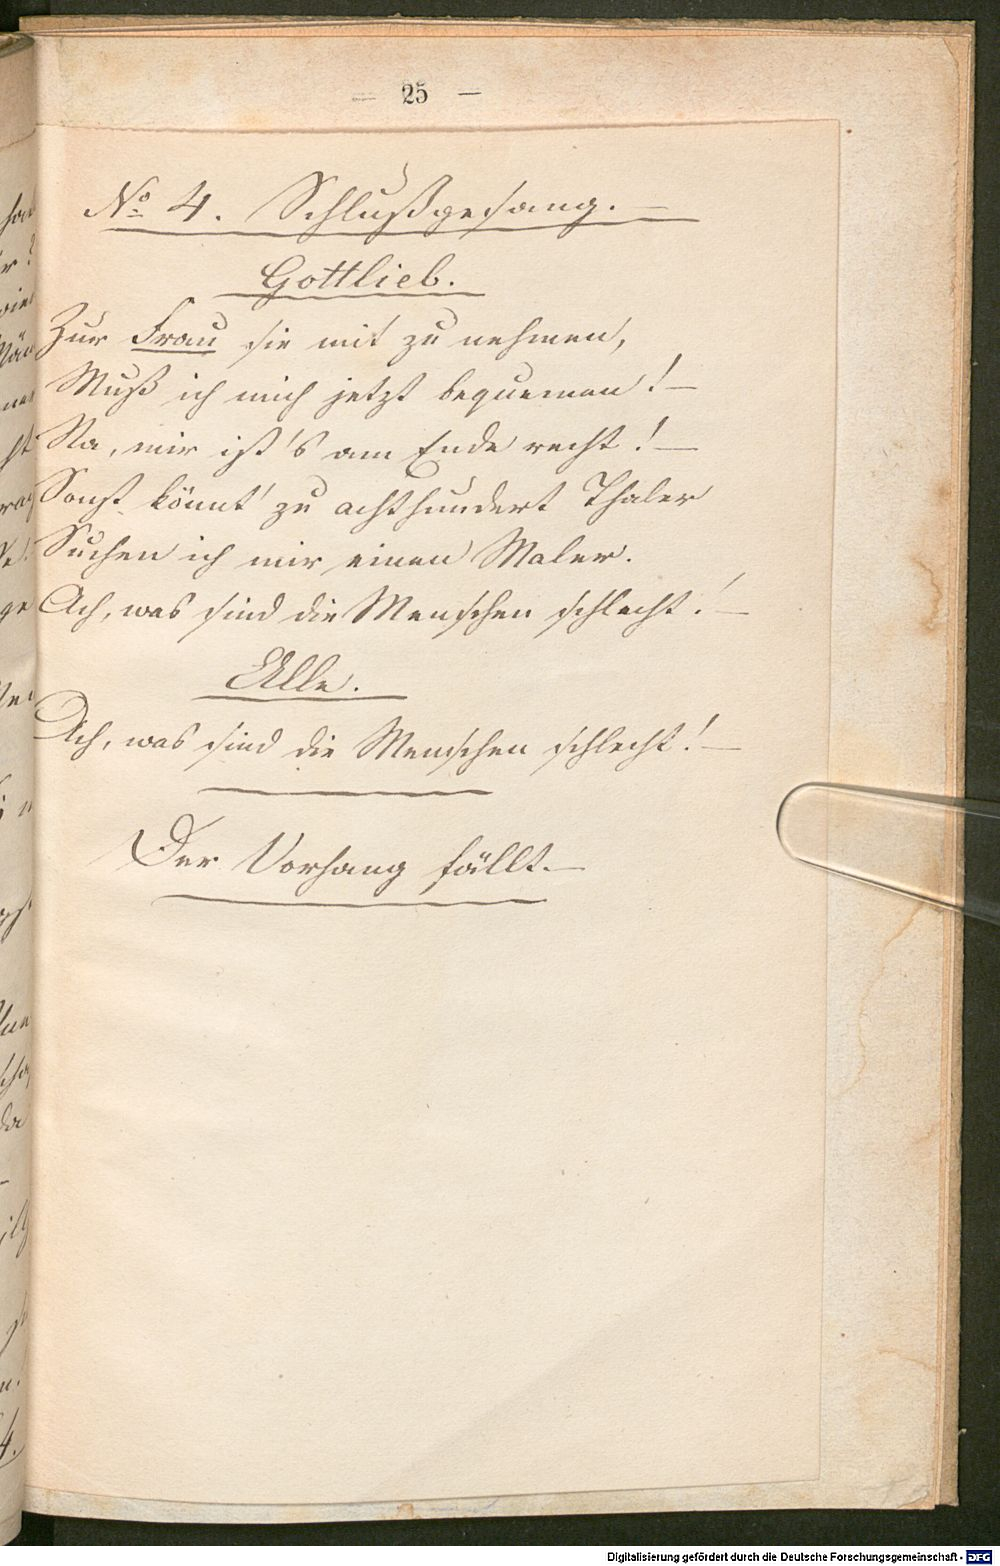 — 25 —
No 4. Schlußgesang. —
Gottlieb.
Zur Frau sie mit zu nehmen,
Muß ich mich jetzt bequemen! —
Na, mir ist's am Ende recht! —
Sonst könnt' zu achthundert Thaler
Suchen ich mir einen Maler.
Ach, was sind die Menschen schlecht! —
Alle.
Ach, was sind die Menschen schlecht! —
Der Vorhang fällt. —
Digitalisierung gefördert durch die Deutsche Forschungsgemeinschaft - DFG